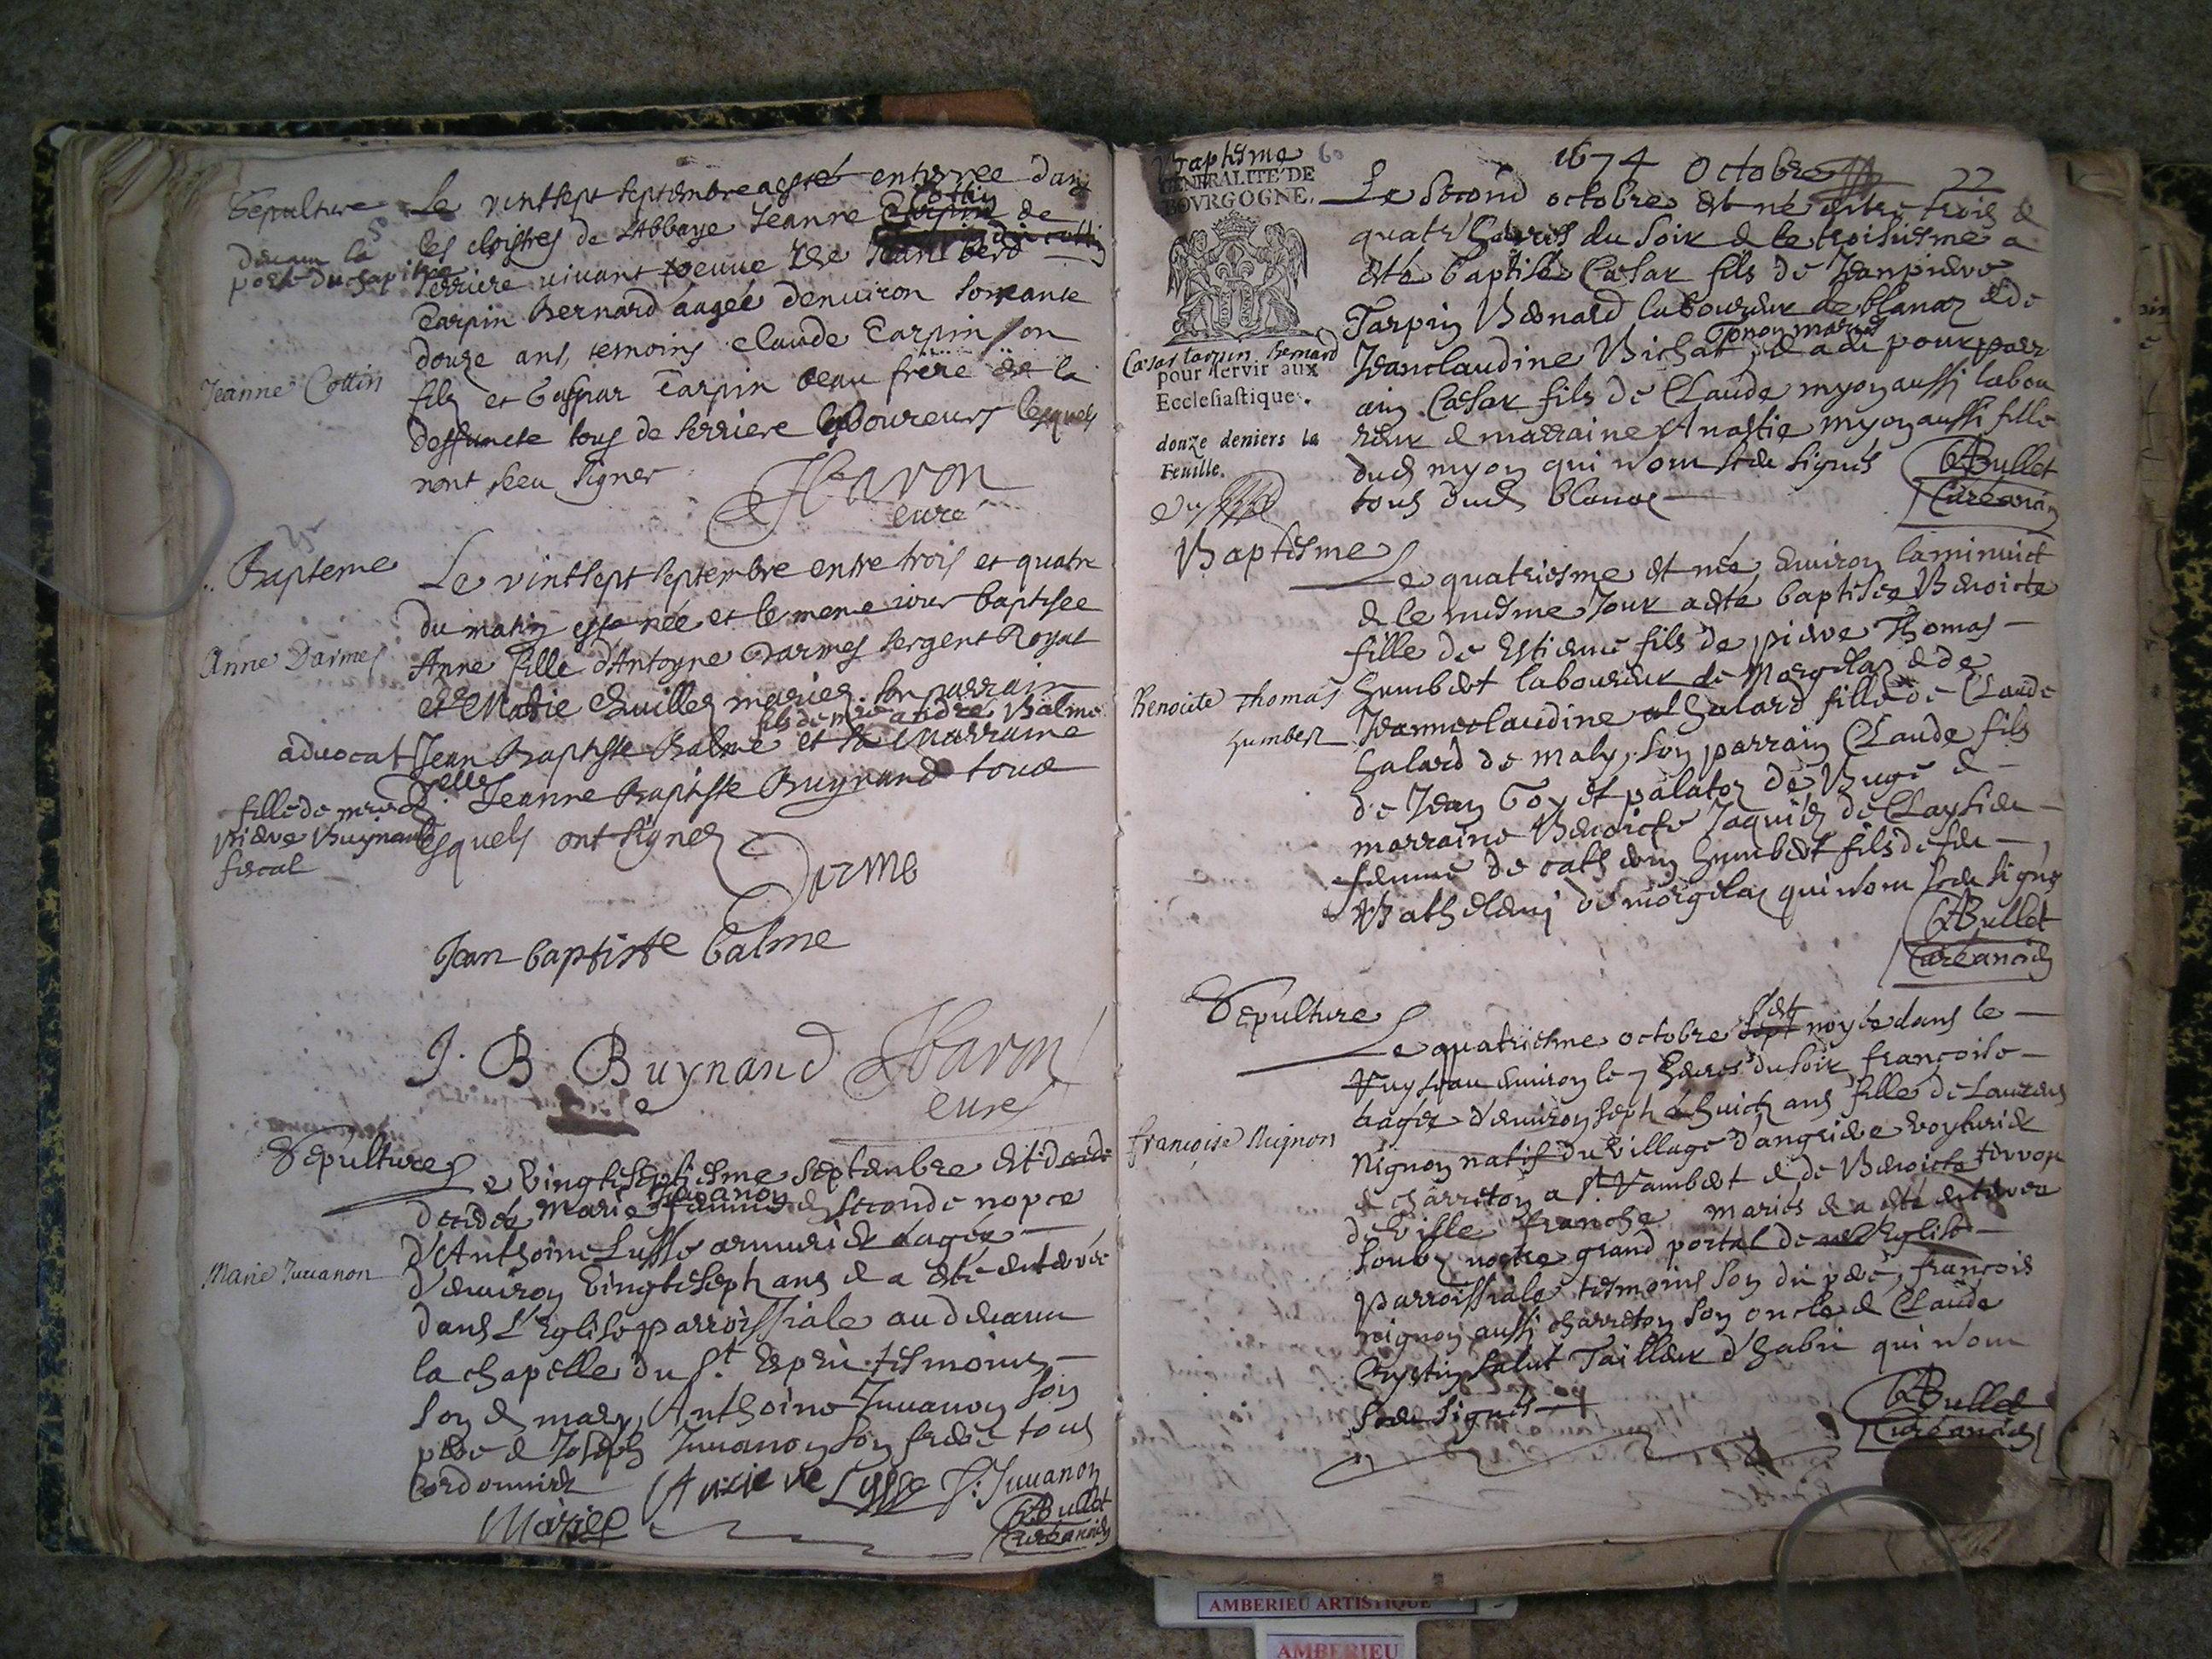 Sepulture
Le vintsept septembre a esté enterree dans
les cloistres de l'Abbaye Jeanne Cottin de
devant la
porte du chapitre
Serriere vivant veuve de
Tarpin Bernard aagée denviron soixante
douze ans, temoins Claude Tarpin son
Jeanne Cottin
filz et Gaspar Tarpin beau frere de la
deffuncte tous de Serriere laboureurs lesquels
nont sceu signer
curé
Bapteme
Le vintsept septembre entre trois et quatre
du matin est née et le meme iour baptisee
Anne Darmes
Anne fille d'Antoyne Darmes sergent Royal
et Marie mariez. son parrain
fils de mre andré Balme
advocat Jean Baptiste Balme et sa Marraine
delle Jeanne Baptiste Buynand tous
fille de
pierre Buynand
fiscal
lesquels ont signez
Darme
Jean baptiste balme
J. B. Buynand
curé
Sepulture
Le vingtiseptiesme septembre est
decedée Marie Juvanon femme en seconde nopce
d'Anthoine Lusse armurier aagée
Marie Juvanon
d'environ vingtisept ans et a esté enterrée
dans l'Eglise parroissiale au devant
la chapelle du St. Esprit tesmoins
son d mary, Anthoine Juvanon son
pere et Joseph Juvanon son frere tous
Cordonnier
Lysse J: Juvanon
Bullet
Curé
1674 Octobre 22
Baptisme 60
GENERALITÉ DE
BOVRGOGNE.
Le second octobre est né entre trois et
quatre heures du soir et le troisiesme a
esté baptisé Cæsar fils de Jeanpierre
Tarpin Bernard laboureur de blanaz et de
Cæsar tarpin Bernard
pour servir aux
Ecclesiastique.
Jeanclaudine Bichat mariés et a eu pour parr
ain Cæsar fils de Claude myon aussi labou
reur et marraine Anastie myon aussi fille
douze deniers la
Feuille.
dud myon qui n'ont sceu signés
tous dud blanaz
Bullet
Curé
Baptisme
Le quatriesme est née environ la minuict
et le mesme Jour a esté baptisée Benoicte
fille de Estienne fils de pierre Thomas
Humbert laboureur de Morgelaz et de
Benoite Thomas
humbert
Jeanneclaudine halard fille de Claude
halard de maly, son parrain Claude fils
de Jean Goyet palatoz de Bugé et
marraine Benoicte Jaquin de
femme de Humbert fils de feu
de morgelaz qui n'ont sceu signé
Bullet
Curé
Sepulture
Le quatriesme octobre s'est noyée dans le
Ruysseau environ le 7 heures du soir françoise
aagée d'environ sept à huict ans fille de Laurens
françoise Nignon
Nignon natif du village d'angriere voyturier
et charreton a St. Rambert et de Benoicte
de Ville franche mariés et a esté enterrée
soubz nostre grand portal de Eglise
parroissiale tesmoins son dit pere, françois
nignon aussi charreton son oncle et Claude
salut Tailleur d'habit qui n'ont
sceu signés
Bullet
Curé
AMBERIEU ARTISTIQUE
AMBERIEU